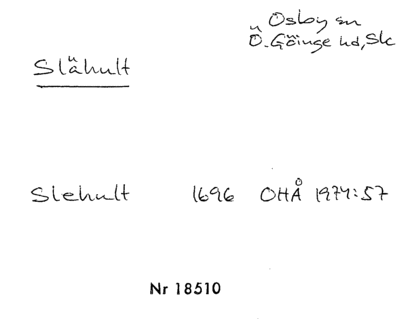 Osby sn
Ö. Göinge hd, Sk
Slähult
Slehult 1696 OHÅ 1974:57
Nr 18510